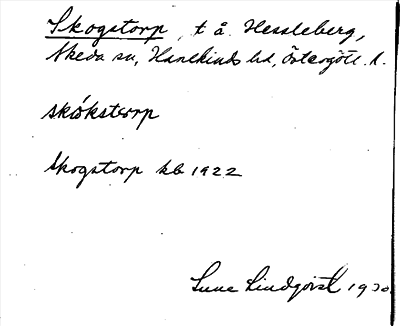 Skogstorp, t å. Hessleberg,
Skeda sn, Hanekinds hd, Östergötl. l.
skókstorp
Skogstorp kb 1922
Sune Lindqvist 1930